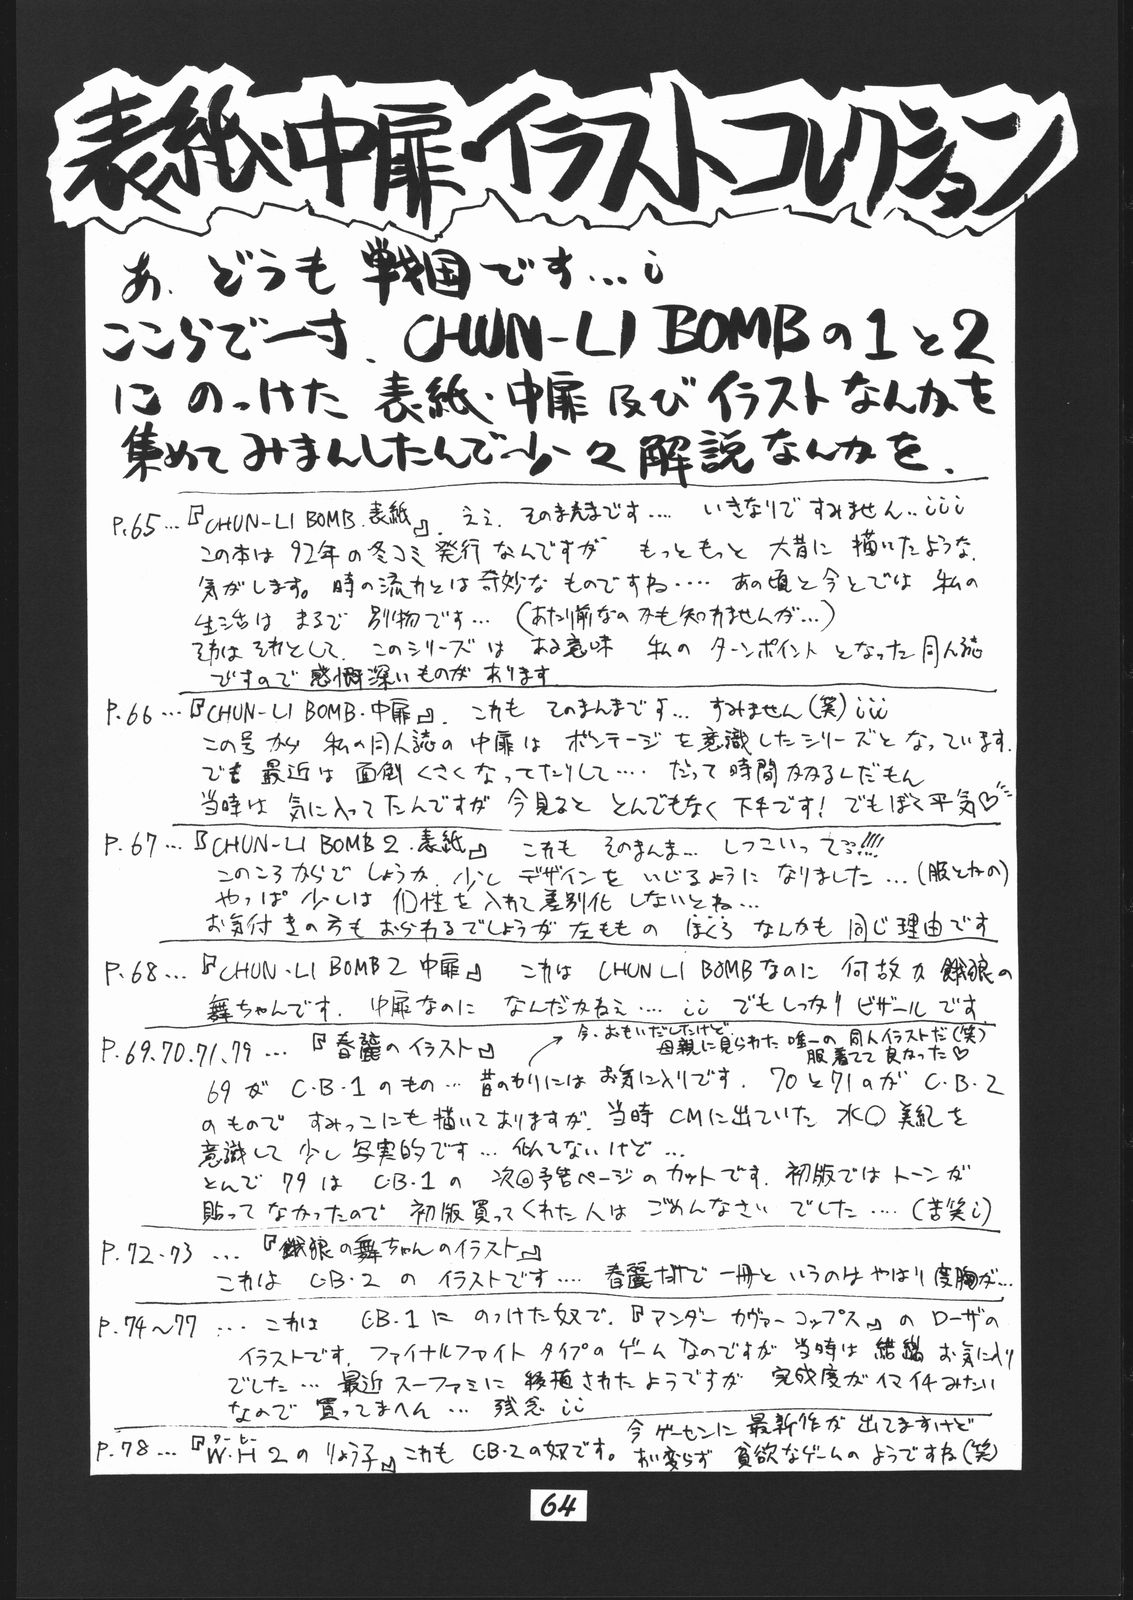 表紙・中扉・イラストコレクション
あ、どうも戦国です…¡
ここらで一寸、CHUN-LI BOMBの1と2
にのっけた表紙・中扉及びイラストなんかを
集めてみまんしたんで少々解説なんかを、
P.65…『CHUN-LI BOMB・表紙』、ええ、そのまんまです…. いきなりですみません..¡¡¡
この本は92年の冬コミ発行なんですが もっともっと大昔に描いたような、
気がします。時の流れとは奇妙なものですね…. あの頃と今とでは 私の
生活は まるで 別物です… (あたり前なのかも知れませんが…)
それはそれとして、このシリーズは ある意味 私の ターンポイント となった同人誌
ですので 感慨深いものが あります
P.66…『CHUN-LI BOMB・中扉』、これも そのまんまです… すみません(笑)¡¡¡
この号から 私の同人誌の中扉は ボンテージを意識したシリーズとなっています.
でも 最近は 面倒くさくなってたりして…. だって 時間かかるんだもん
当時は 気に入ってたんですが 今見ると とんでもなく 下手です! でもぼく平気♡
P.67…『CHUN-LI BOMB 2・表紙』 これも そのまんま… しつこいって!!!!
このころからでしょうか、少し デザインを いじるように なりました… (服とかの)
やっぱ 少しは 個性を入れて差別化 しないとね…
お気付きの方も おられるでしょうが 左ももの ほくろ なんかも 同じ理由です
P.68…『CHUN-LI BOMB 2 中扉』 これは CHUN LI BOMBなのに 何故か 餓狼の
舞ちゃんです. 中扉なのに なんだかねぇ…. ¡¡ でもしっかり ビザール です
P.69.70.71.79…『春麗のイラスト』
今、おもいだしたけど、
母親に見られた 唯一の 同人イラストだ(笑)
服着てて 良かった♡
69が C・B・1のもの… 昔のわりには お気に入りです. 70と71のが C・B・2
のもので すみっこにも描いておりますが、当時 CMに出ていた 水〇 美紀を
意識して 少し 写実的です… 似てないけど…
とんで 79は C・B・1の 次回予告ページの カットです. 初版では トーンが
貼って なかったので 初版買ってくれた人は ごめんなさい でした…. (苦笑¡)
P.72・73 …『餓狼の舞ちゃんのイラスト』
これは C・B・2 の イラストです…. 春麗だけで 一冊と いうのは やはり 度胸が…
P.74〜77 … これは C・B・1に のっけた奴で、『アンダー カヴァー コップス』の ローザの
イラストです. ファイナルファイト タイプの ゲーム なのですが 当時は 結構 お気に入り
でした… 最近 スーファミに 移植されたようですが 完成度がイマイチみたい
なので 買ってまへん… 残念 ¡¡
P.78…『W・H 2の りょう子』これも C・B・2の奴です。 今ゲーセンに 最新作が 出てますけど
ダーヒー
あい変らず 貪欲なゲームの ようですね(笑)
64